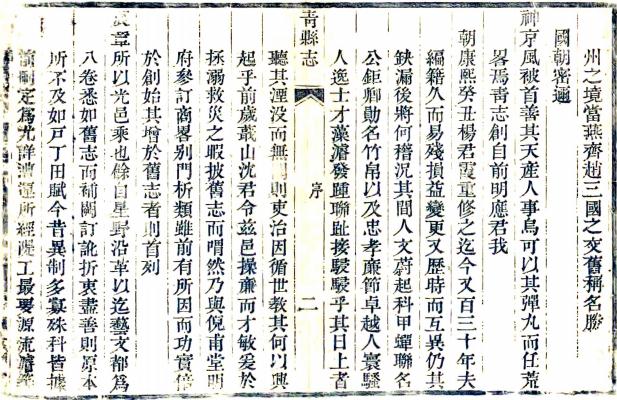 州之境當燕齊趙三國之交舊稱名勝
國朝密邇
神京風被首善其天產人事烏可以其彈丸而任荒
畧焉青志創自前明應君我
朝康熙癸丑楊君霞重修之迄今又百三十年夫
編籍久而易殘損益變更又歷時而互異仍其
缺漏後將何稽況其間人文蔚起科甲蟬聯名
公鉅卿勛名竹帛以及忠孝廉節卓越人寰騷
人逸士才藻濬發踵聯趾接駸駸乎其日上者
青縣志
序
二
聽其湮沒而無則吏治因循世教其何以興
起乎前歲叢山沈君令茲邑操廉而才敏爰於
拯溺救災之暇披舊志而喟然乃與倪甫堂明
府參訂商畧別門析類雖前有所因而功實倍
於創始其增於舊志者則首列
章所以光邑乘也餘自星野沿革以迄藝文都為
八卷悉如舊志而補闕訂訛折衷盡善則原本
所不及如戶丁田賦今昔異制多寡殊科皆據
定為尤詳漕運所經隄工最要源流濬築